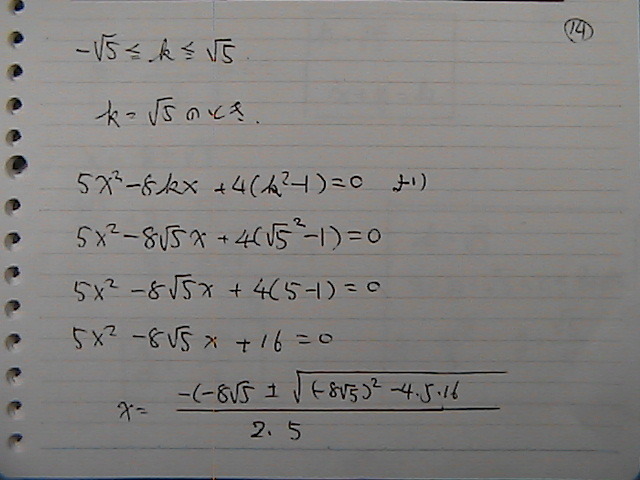 (14)
-√5 ≦ k ≦ √5.
k = √5 のとき.
5x² - 8kx + 4(k² - 1) = 0 より
5x² - 8√5x + 4(√5² - 1) = 0
5x² - 8√5x + 4(5 - 1) = 0
5x² - 8√5x + 16 = 0
x = (-(-8√5 ± √((-8√5)² - 4・5・16))/(2・5)